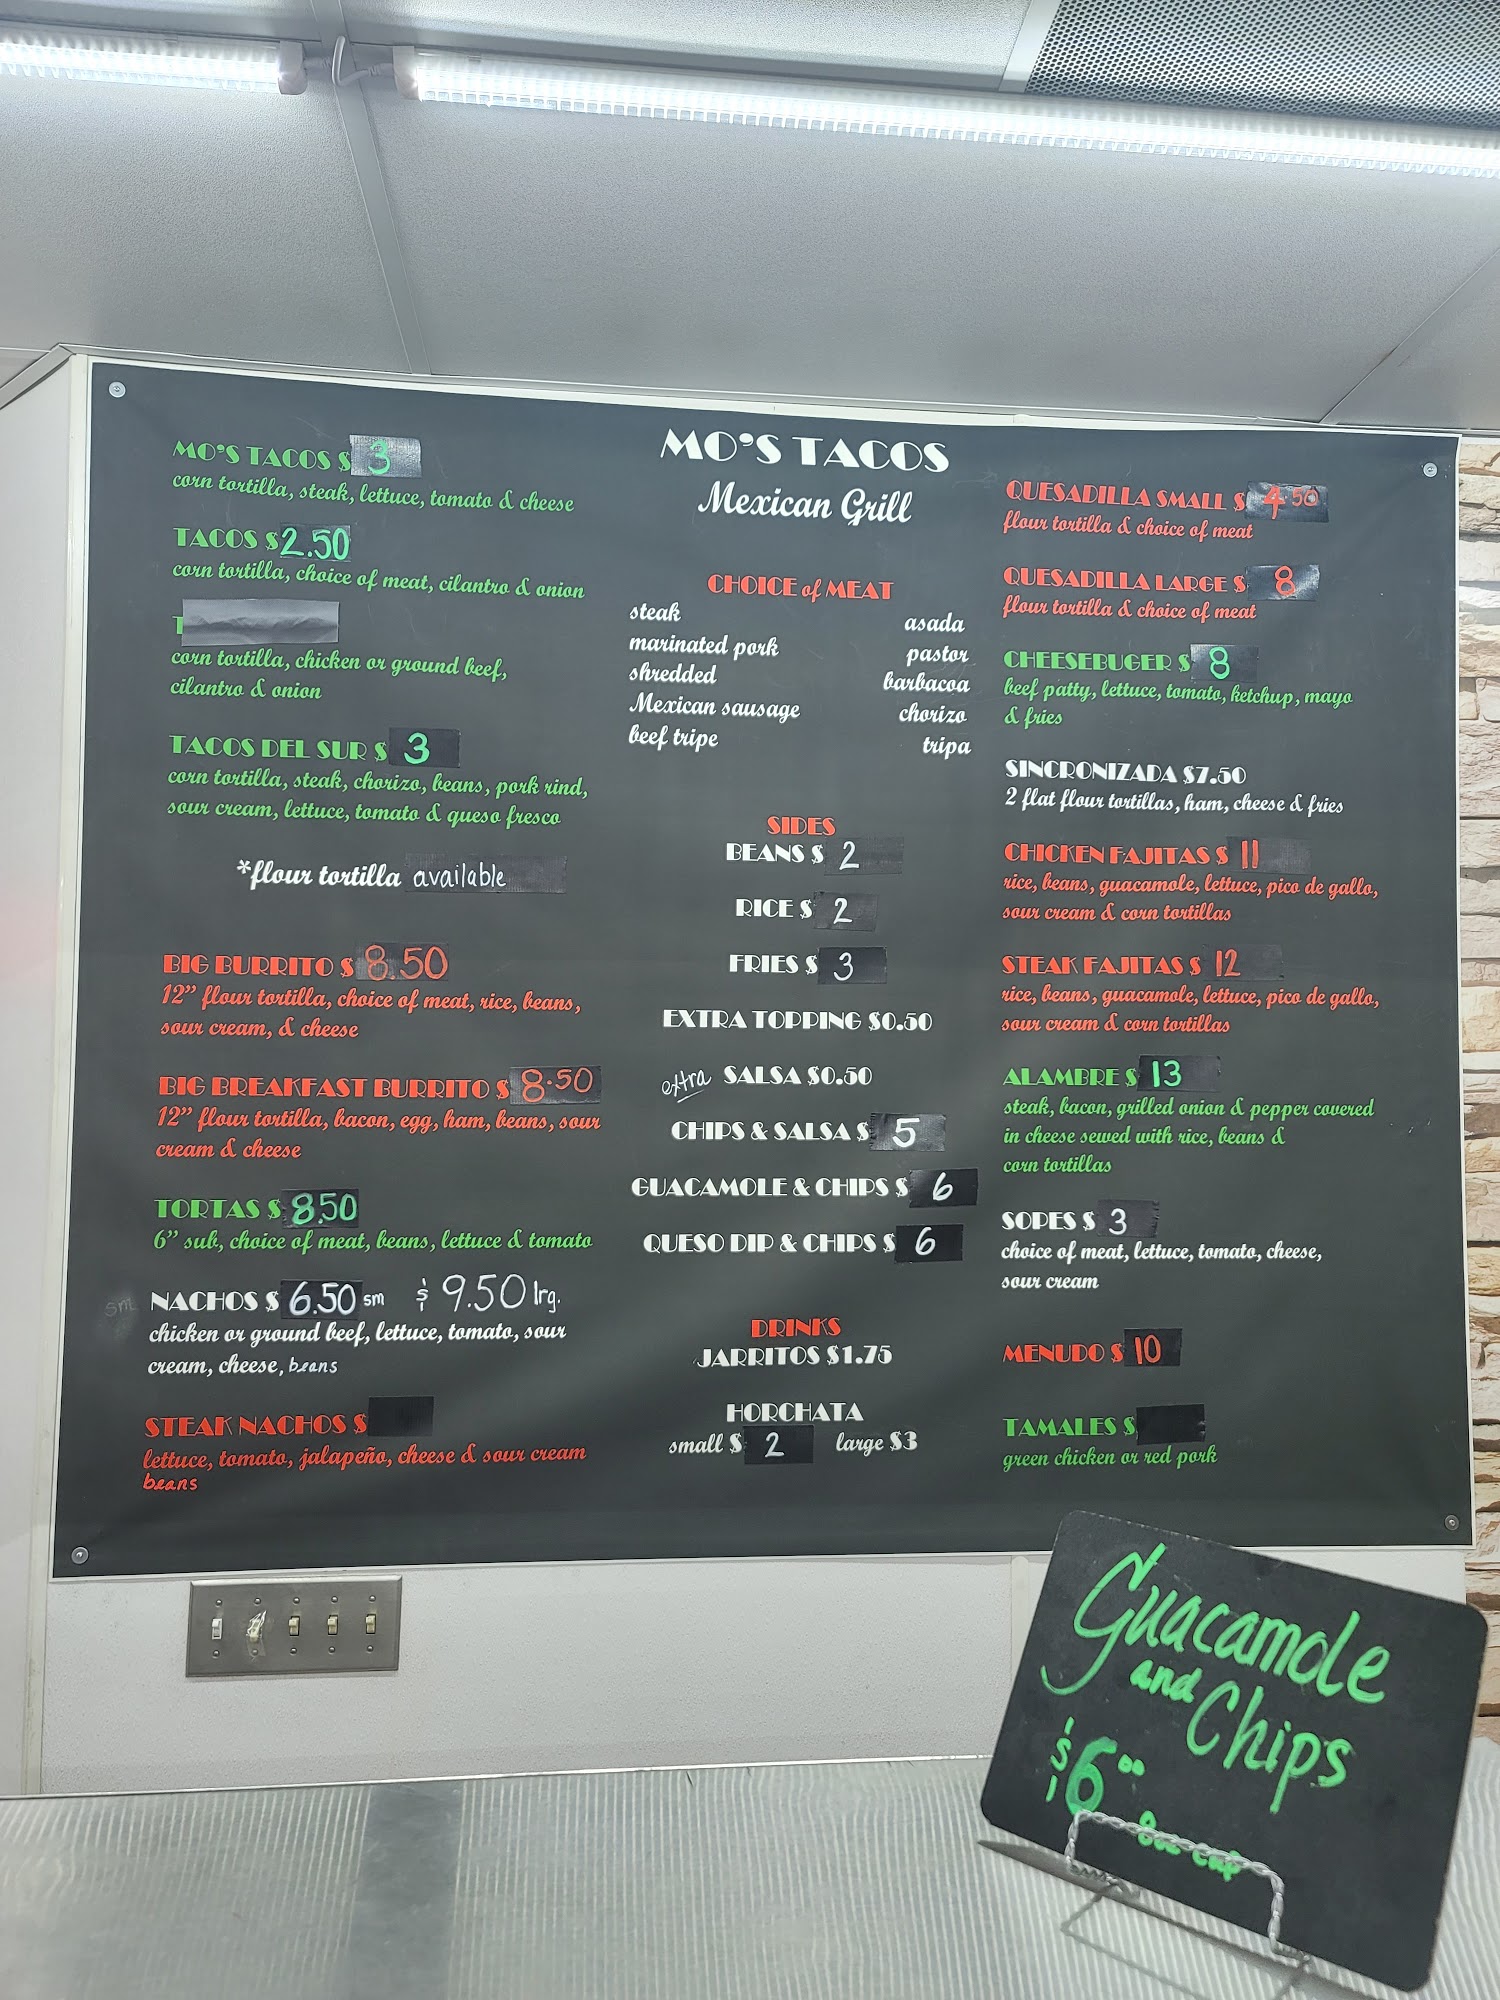 MO'S TACOS
Mexican Grill
MO'S TACOS $ 3
corn tortilla, steak, lettuce, tomato & cheese
TACOS $2.50
corn tortilla, choice of meat, cilantro & onion
T
corn tortilla, chicken or ground beef,
cilantro & onion
TACOS DEL SUR $ 3
corn tortilla, steak, chorizo, beans, pork rind,
sour cream, lettuce, tomato & queso fresco
*flour tortilla available
BIG BURRITO $ 8.50
12" flour tortilla, choice of meat, rice, beans,
sour cream, & cheese
BIG BREAKFAST BURRITO $ 8.50
12" flour tortilla, bacon, egg, ham, beans, sour
cream & cheese
TORTAS $ 8.50
6" sub, choice of meat, beans, lettuce & tomato
sm NACHOS $ 6.50 sm $ 9.50 lrg.
chicken or ground beef, lettuce, tomato, sour
cream, cheese, beans
STEAK NACHOS $
lettuce, tomato, jalapeño, cheese & sour cream
beans
CHOICE of MEAT
steak asada
marinated pork pastor
shredded barbacoa
Mexican sausage chorizo
beef tripe tripa
SIDES
BEANS $ 2
RICE $ 2
FRIES $ 3
EXTRA TOPPING $0.50
extra SALSA $0.50
CHIPS & SALSA $ 5
GUACAMOLE & CHIPS $ 6
QUESO DIP & CHIPS $ 6
DRINKS
JARRITOS $1.75
HORCHATA
small $ 2 large $3
QUESADILLA SMALL $ 4.50
flour tortilla & choice of meat
QUESADILLA LARGE $ 8
flour tortilla & choice of meat
CHEESEBUGER $ 8
beef patty, lettuce, tomato, ketchup, mayo
& fries
SINCRONIZADA $7.50
2 flat flour tortillas, ham, cheese & fries
CHICKEN FAJITAS $ 11
rice, beans, guacamole, lettuce, pico de gallo,
sour cream & corn tortillas
STEAK FAJITAS $ 12
rice, beans, guacamole, lettuce, pico de gallo,
sour cream & corn tortillas
ALAMBRE $ 13
steak, bacon, grilled onion & pepper covered
in cheese sewed with rice, beans &
corn tortillas
SOPES $ 3
choice of meat, lettuce, tomato, cheese,
sour cream
MENUDO $ 10
TAMALES $
green chicken or red pork
Guacamole
and Chips
$6.00
8oz cup